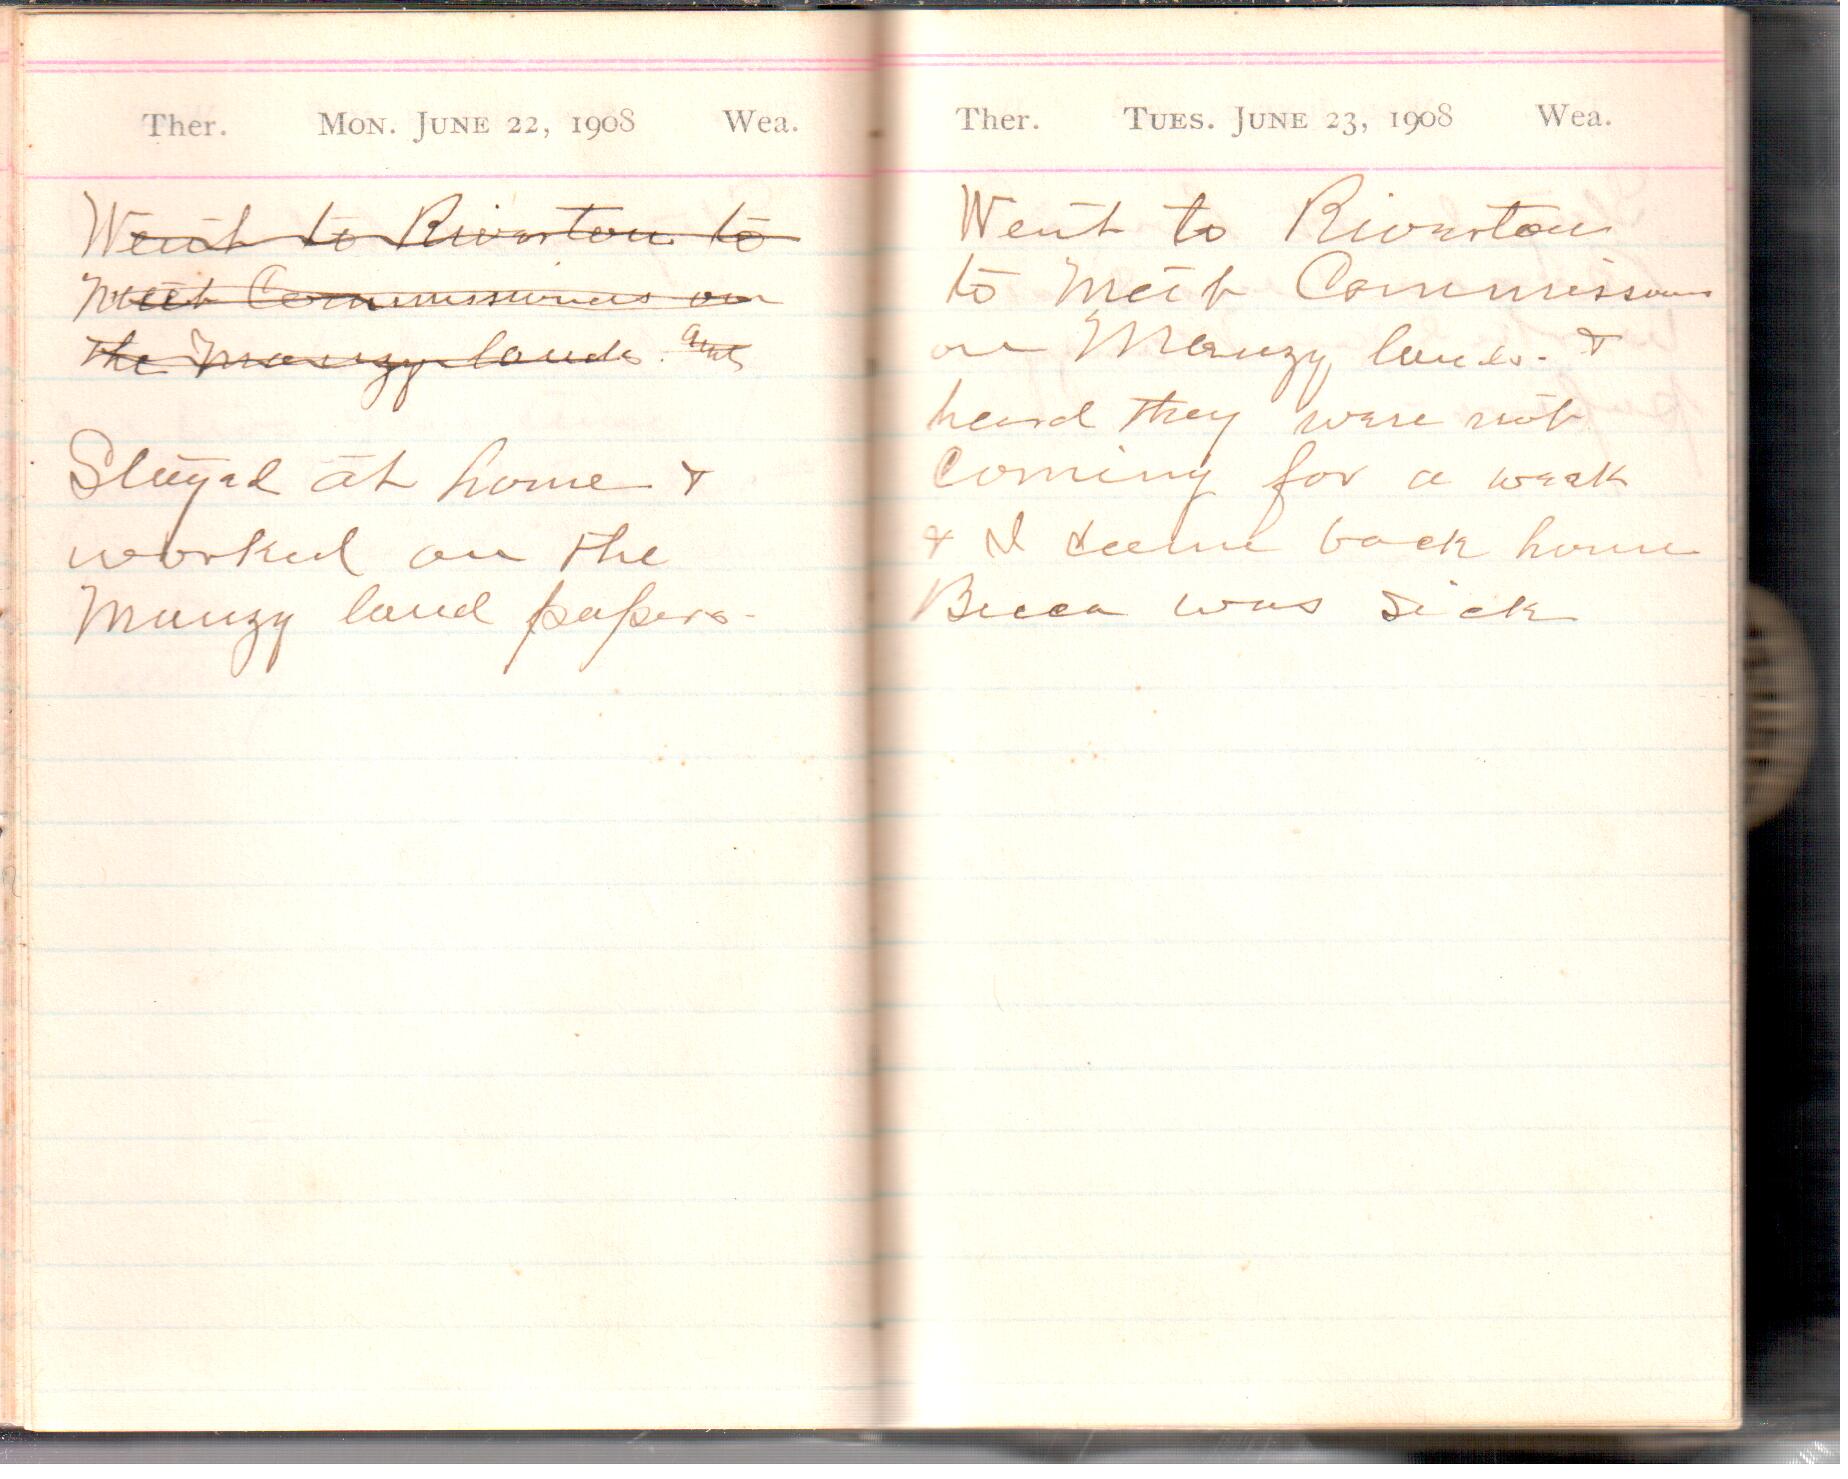 Ther. Mon. June 22, 1908 Wea.
Went to Riverton to
Meet Commissioners on
the Manzy lands. and
Stayed at home &
worked on the
Manzy land papers-
Ther. Tues. June 23, 1908 Wea.
Went to Riverton
to Meet Commissioners
on Manzy lands. &
heard they were not
Coming for a week
& I came back home
Becca was Sick